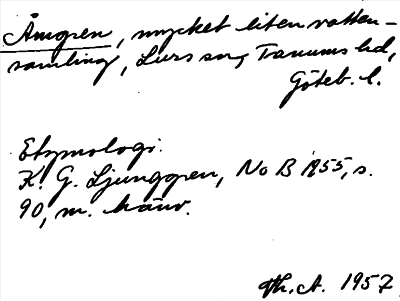 Åmogen, mycket liten vatten-
samling, Lurs sn, Tanums hd,
Göteb. l.
Etymologi.
K. G. Ljunggren, NoB 1955, s.
90, m. hänv.
Th. A. 1957